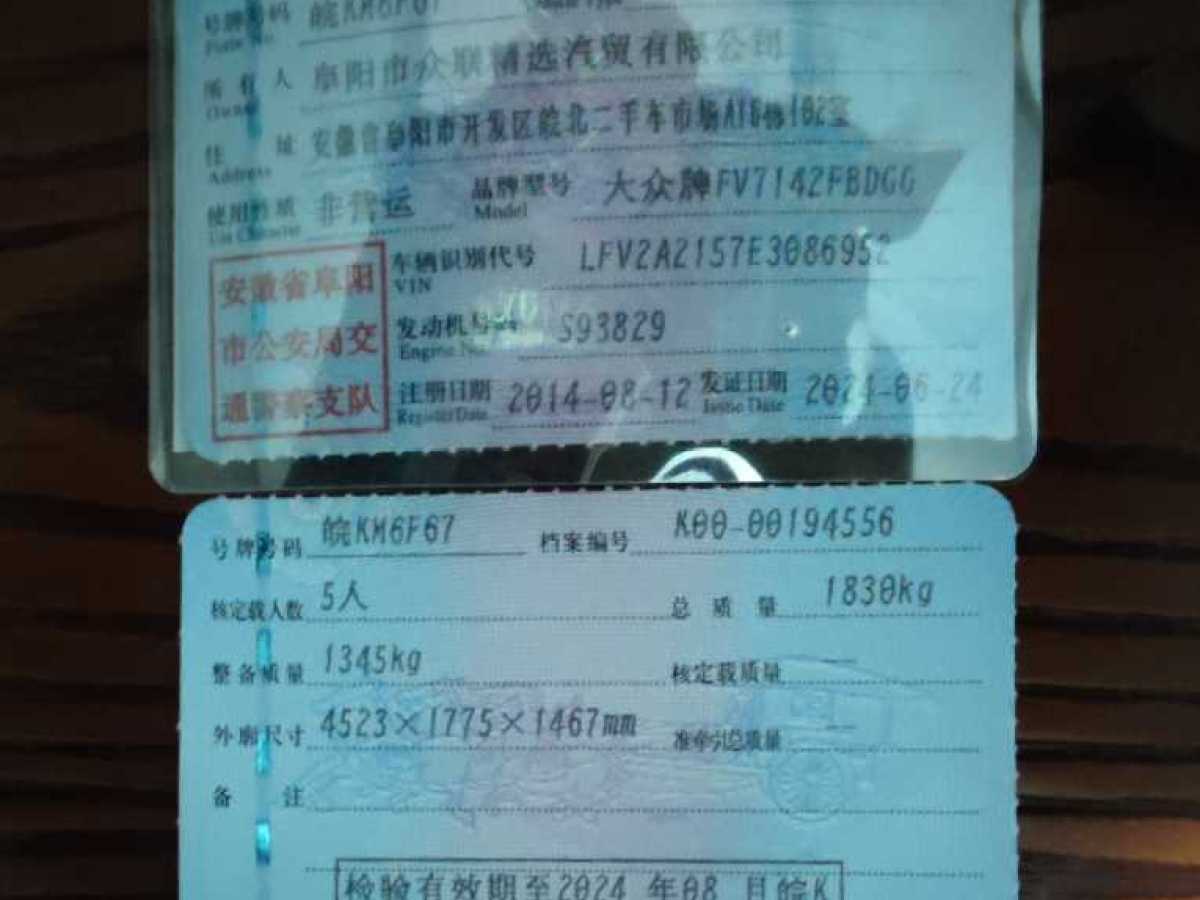 号牌号码 皖KM6F67
Plate No.
所有人 阜阳市众联精选汽贸有限公司
Owner
住址 安徽省阜阳市开发区皖北二手车市场A18栋102室
Address
使用性质 非营运 品牌型号 大众牌FV7142FBDGG
Use Character Model
安徽省阜阳
市公安局交
通警察支队
车辆识别代号 LFV2A2157E3086952
VIN
发动机号码 S93829
Engine No.
注册日期 2014-08-12 发证日期 2024-06-24
Register Date Issue Date
号牌号码 皖KM6F67 档案编号 K00-00194556
核定载人数 5人 总质量 1830kg
整备质量 1345kg 核定载质量 --
外廓尺寸 4523×1775×1467mm 准牵引总质量 --
备注
检验有效期至2024 年08 月皖K